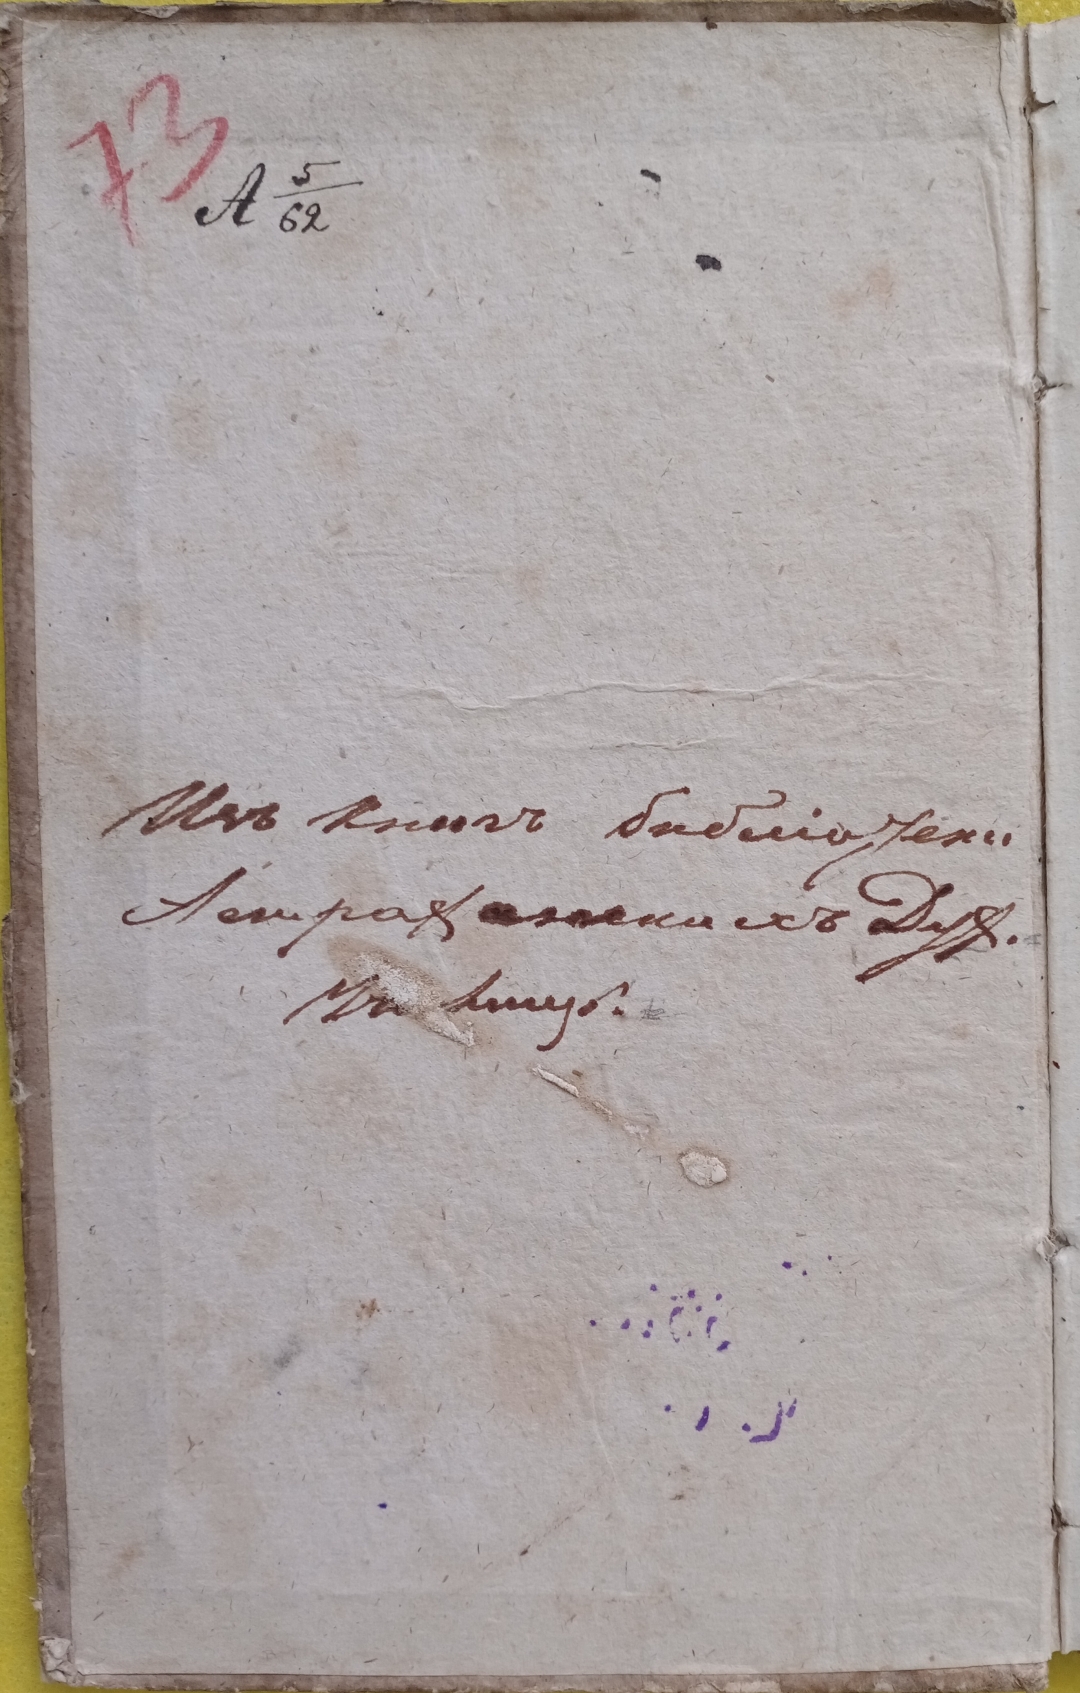 73
А 5/62
Изъ книгъ библіотеки
Астраханскихъ Дух.